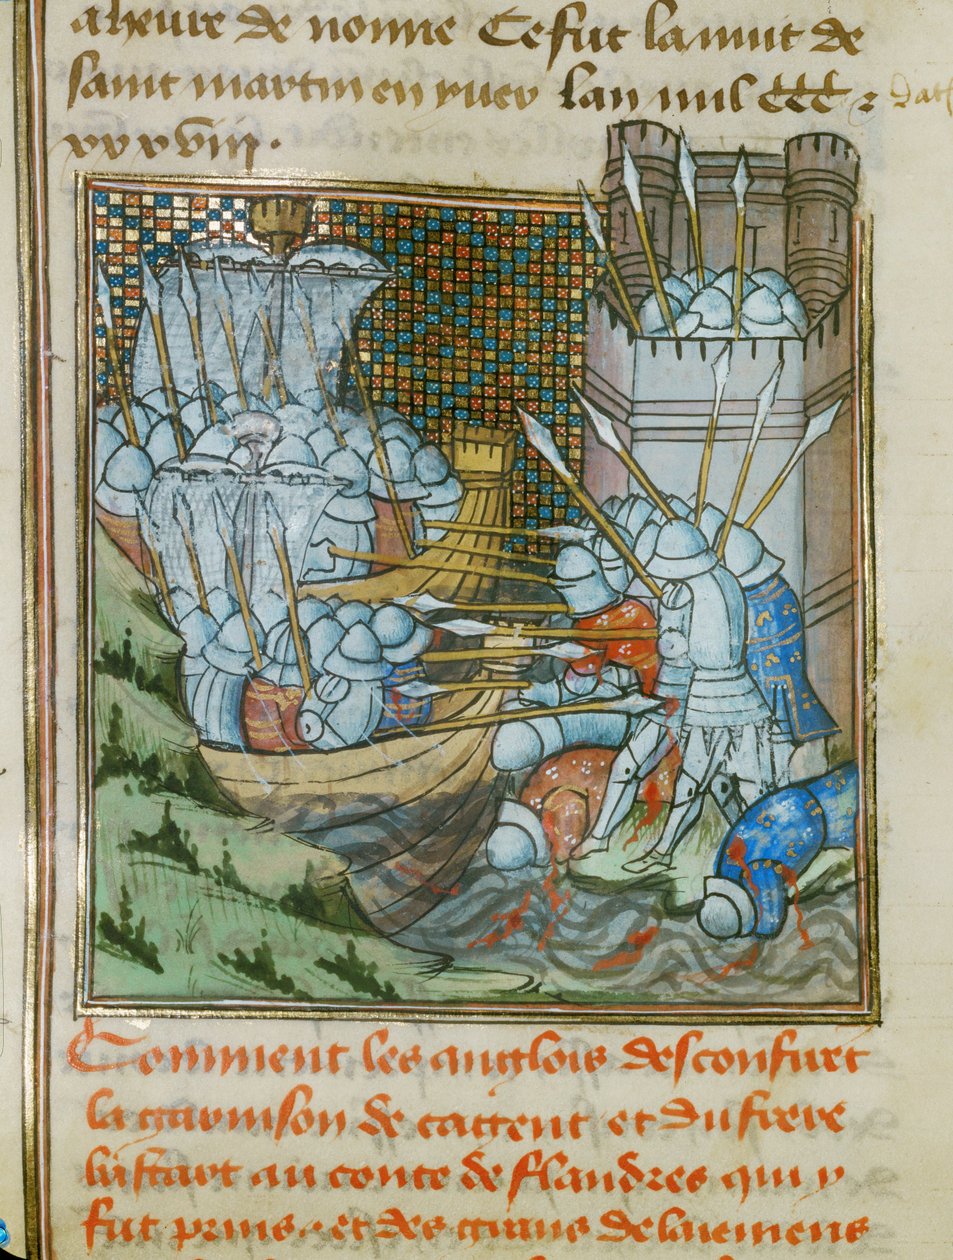 a heure de nonne Ce fut la nuit de
saint martin en yver lan mil ccc
xxxviij.
Comment les anglois desconfirent
la garnison de cagent et du frere
bastart au conte de flandres qui y
fut prins. et des gens de